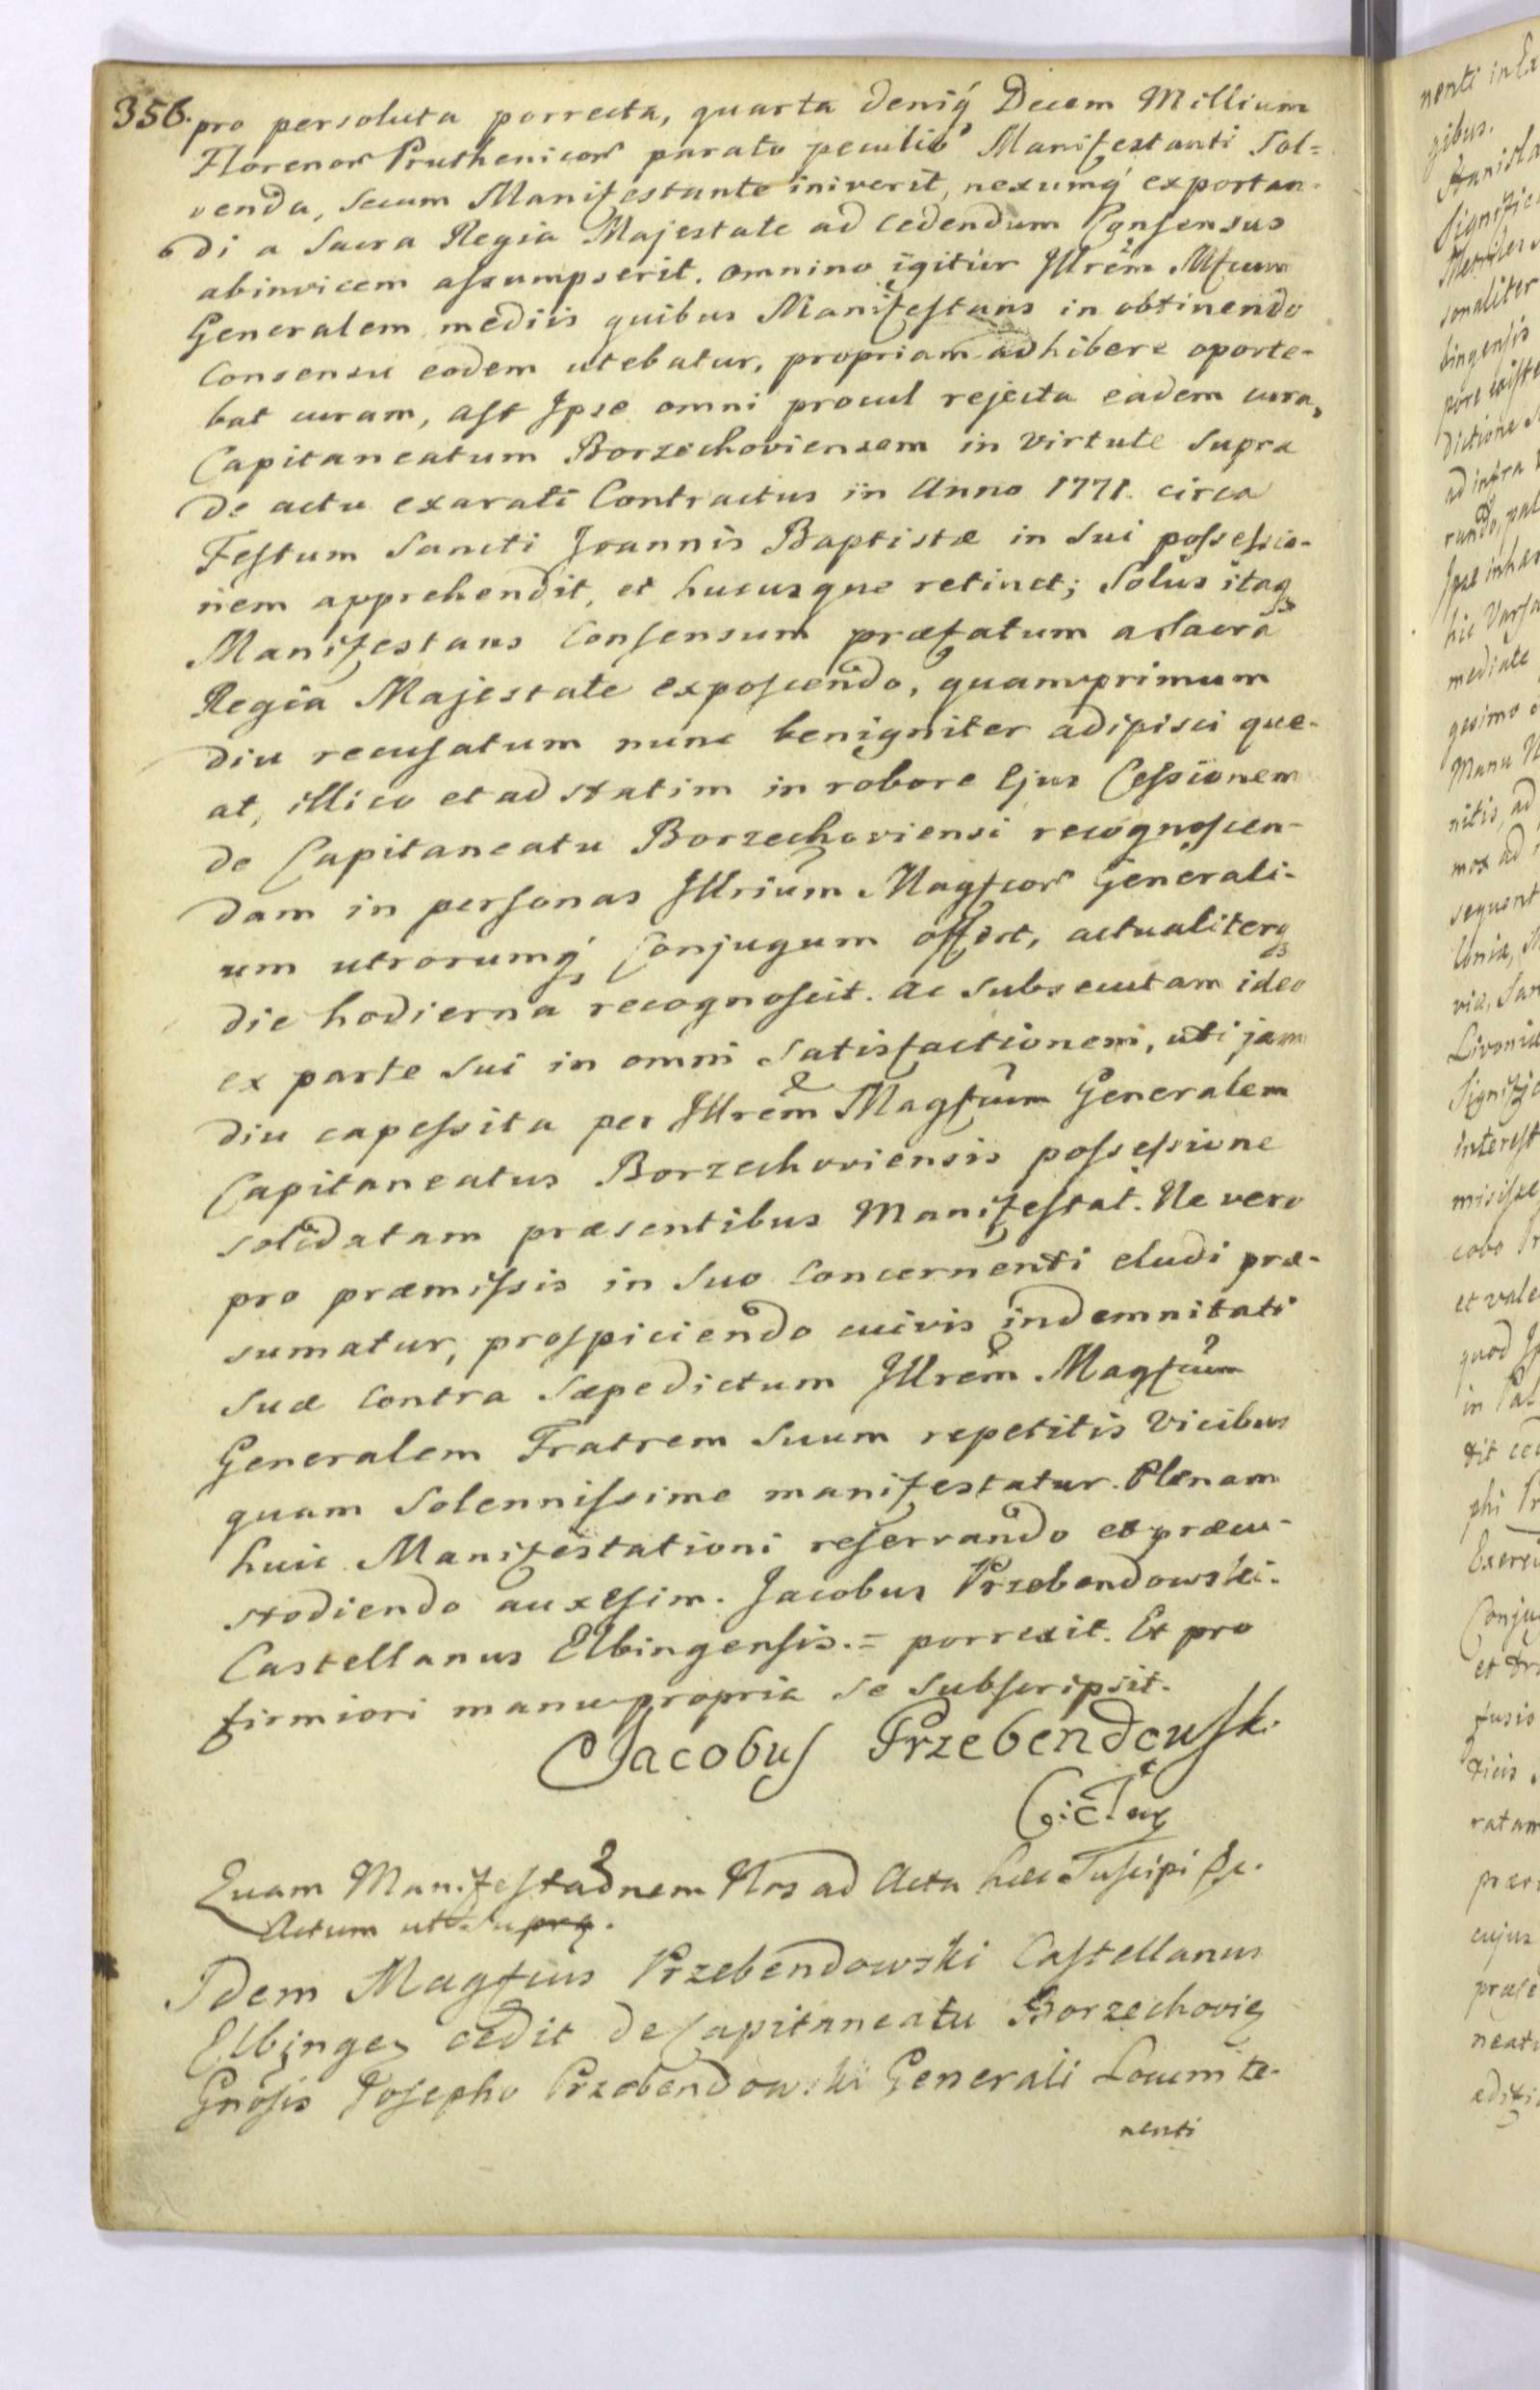 356. pro persoluta porrecta, quarta deniq́ Decem Millium
Florenor Pruthenicor parato peculio Manifestanti Sol=
venda, secum Manifestante iniverit, nexumq́ exportan-
di a Sacra Regia Majestate ad cedendum Consensus
abinvicem assumpserit. omnino igitur Illrem Mfcum
Generalem mediis quibus Manifestans in obtinendo
Consensu eodem utebatur, propriam adhibere oporte-
bat curam, ast Ipse omni procul rejecta eadem cura,
Capitaneatum Borzechoviensem in virtute Supra
de actu exarati Contractus in Anno 1771. circa
Festum Sancti Joannis Baptistæ in Sui possessio-
nem apprehendit, et hucusque retinet; Solus itaq
Manifestans Consensum præfatum a Sacra
Regia Majestate exposcendo, quamprimum
diu recusatum nunc benigniter adipisci que-
at, illico et ad statim in robore Ejus Cessionem
de Capitaneatu Borzechoviensi recognoscen-
dam in personas Illrium Magfcor Generali-
um utrorumq́ Conjugum offert, actualiterq
die hodierna recognoscit. ac subsecutam ideo
ex parte sui in omni satisfactionem, uti jam
diu capessita per Illrem Magfcum Generalem
Capitaneatus Borzechoviensis possessione
solidatam præsentibus Manifestat. Ne vero
pro præmissis in Suo Concernenti eludi præ-
sumatur, prospiciendo cuivis indemnitati
Suæ Contra Sæpedictum Illrem Magfcum
Generalem Fratrem Suum repetitis Vicibus
quam Solennissime manifestatur. Plenam
huic Manifestationi reservando et præcu-
stodiendo auxesim. Jacobus Przebendowski
Castellanus Elbingensis.= porrexit. Et pro
firmiori manu propria se subscripsit.
Jacobus Przebendowski
Quam Manifestaonem Nos ad Acta hæc Suscipi &c.
Actum ut supra.
Idem Magfcus Przebendowski Castellanus
Elbingen cedit de Capitaneatu Borzechovien
Gnosis Josepho Przebendowski Generali Locumte-
nenti